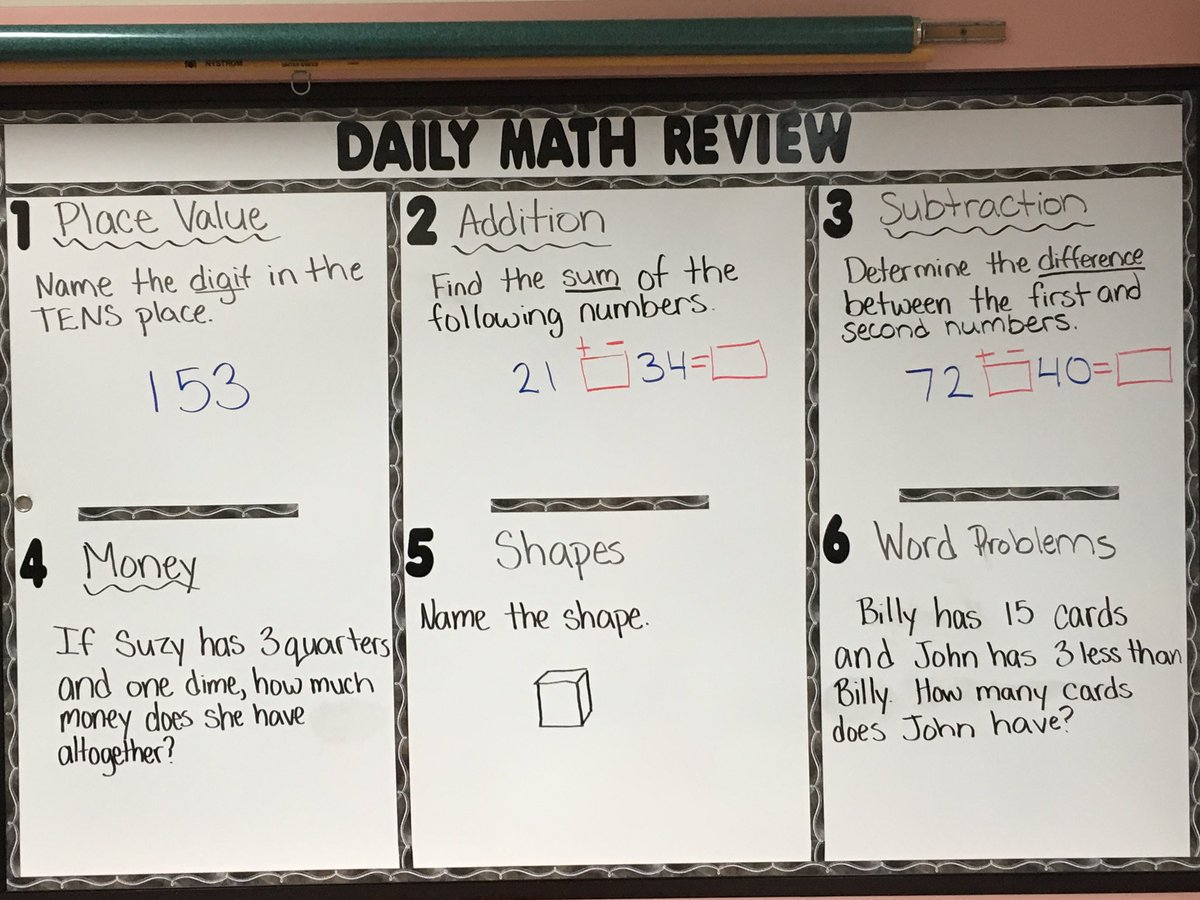 NYSTROM
DAILY MATH REVIEW
1 Place Value
Name the digit in the
TENS place.
153
2 Addition
Find the sum of the
following numbers.
+ -
21 34=
3 Subtraction
Determine the difference
between the first and
second numbers.
+ -
72 40=
4 Money
If Suzy has 3 quarters
and one dime, how much
money does she have
altogether?
5 Shapes
Name the shape.
6 Word Problems
Billy has 15 cards
and John has 3 less than
Billy. How many cards
does John have?